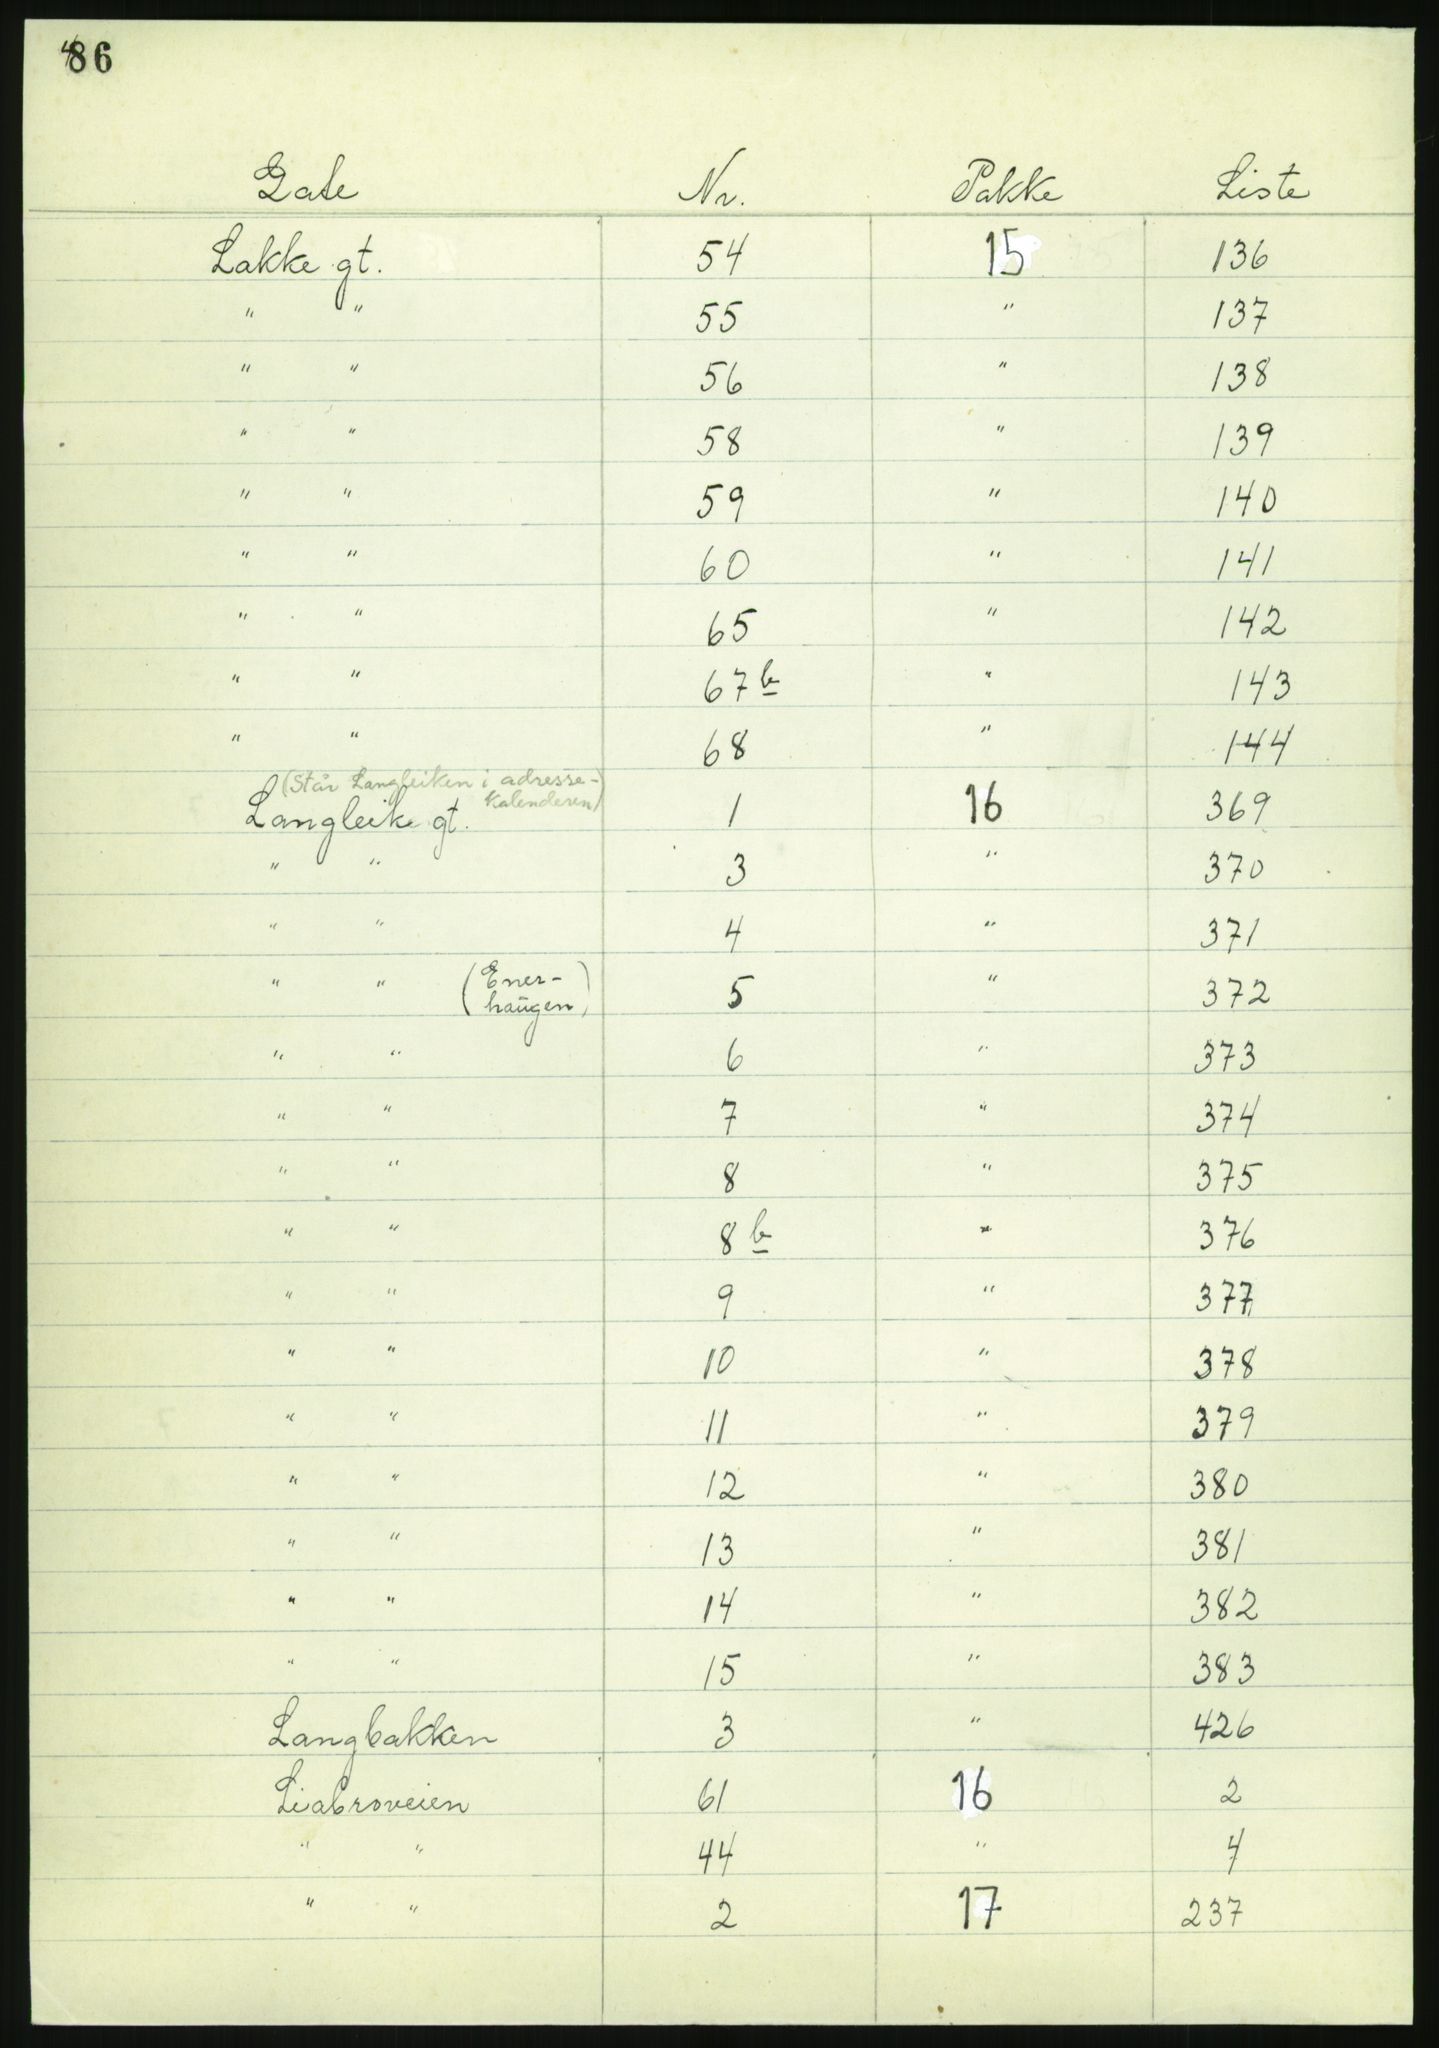 486
Gate Nr. Pakke Liste
Lakke gt. 54 15 136
" " 55 " 137
" " 56 " 138
" " 58 " 139
" " 59 " 140
" " 60 " 141
" " 65 " 142
" " 67 b " 143
" " 68 " 144
(Står Langleiken i adresse-
kalenderen)
Langleik gt. 1 16 369
" " 3 " 370
" " 4 " 371
" " (Ener-
haugen) 5 " 372
" " 6 " 373
" " 7 " 374
" " 8 " 375
" " 8 b " 376
" " 9 " 377
" " 10 " 378
" " 11 " 379
" " 12 " 380
" " 13 " 381
" " 14 " 382
" " 15 " 383
Langbakken 3 " 426
Liabroveien 61 16 2
" " 44 " 4
" " 2 17 237